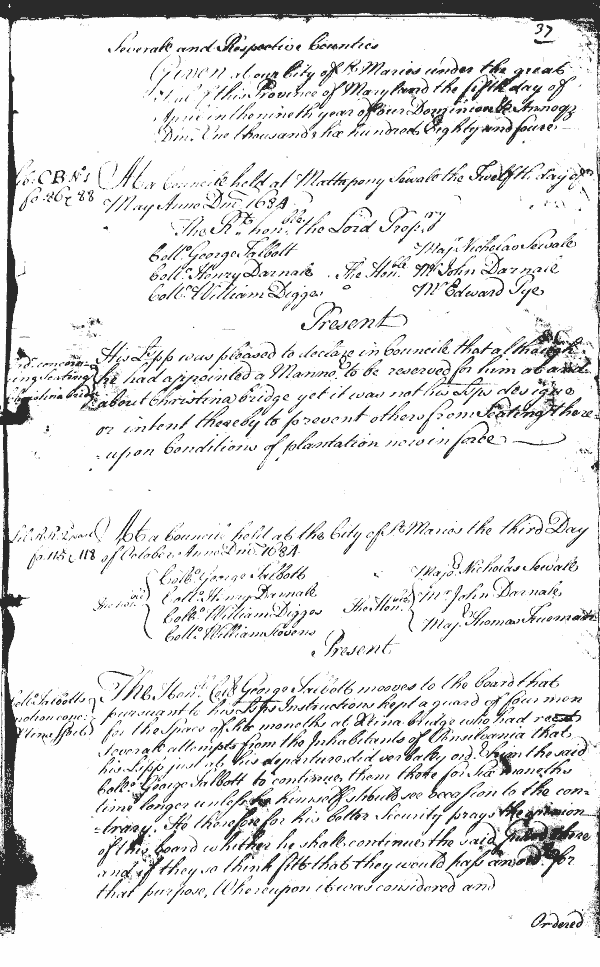 37
Severale and Respective Counties
Given at our City of St Maries under the great
Seal of this Province of Maryland the fifth day of
Aprie in the nineth year of our Dominion &c Annoq
Dni One thousand six hundred Eighty and foure
Lib: C B No 1
fo: 86 & 88
At a Councile held at Mattapony Sewale the Twelfth day of
May Anno Dni 1684
The Rt honble the Lord Propry
Collo George Talbott
Collo Henry Darnale
Collo William Digges
The Honble
Majr Nicholas Sewale
Mr John Darnale
Mr Edward Pye
Present
His Lspp was pleased to declare in Councile that although
he had appointed a Mannor to be reserved for him at and
about Christina bridge yet it was not his Lsps designe
or intent thereby to prevent others from Seating there-
-upon Conditions of plantation now in force
concern-
ing Seating
Christina bridge
Lib: R. R.
fo: 115 & 118
At a Councile held at the City of St Maries the third Day
of October Anno Dni 1684
The honble
Collo George Talbott
Collo Henry Darnale
Collo William Digges
Collo William Stevens
The Honble
Majr Nicholas Sewale
Mr John Darnale
Majr Thomas Trueman
Present
Collo Talbotts
motion conc:
Xtina
The Honble Collo George Talbott mooves to the board that
pursuant to his Lsps Instructions kept a guard of four men
for the Space of Six moneths at Xtina bridge who had
Severale attempts from the Inhabitants of Pensilvania that
his Lspp just at his departure did verbally ordr him the said
Collo George Talbott to continue them there for Six moneths
time longer unless he himself should see occasion to the con-
-trary. He therefore for his better Security prays the opinion
of this board whether he shall continue the said Guard there
and if they so think fitt that they would pass an ordr for
that purpose, Whereupon it was considered and
Ordered